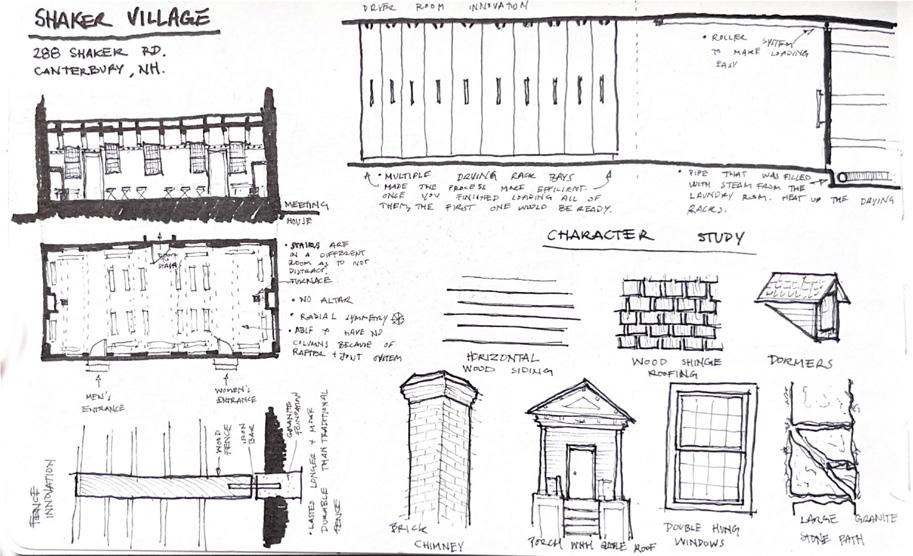 SHAKER VILLAGE
288 SHAKER RD.
CANTERBURY, NH.
MEETING
HOUSE
• STAIRS ARE
IN A DIFFERENT
ROOM AS TO NOT
DISTRACT.
FURNACE
• NO ALTAR
• RADIAL SYMMETRY
• ABLE TO HAVE NO
COLUMNS BECAUSE OF
SYSTEM
DOOR
TO
STAIRS
MEN'S
ENTRANCE
WOMEN'S
ENTRANCE
FENCE
INNOVATION
WOOD
FENCE
IRON
BAR
GRANITE
FOUNDATION
• LASTED LONGER + MORE
DURABLE THAN TRADITIONAL
FENCE
DRYER ROOM INNOVATION
• ROLLER SYSTEM
TO MAKE LOADING
EASY
• MULTIPLE DRYING RACK BAYS
MADE THE PROCESS MORE EFFICIENT.
ONCE YOU FINISHED LOADING ALL OF
THEM, THE FIRST ONE WOULD BE READY.
• PIPE THAT WAS FILLED
WITH STEAM FROM THE
LAUNDRY ROOM. HEAT UP THE DRYING
RACKS.
CHARACTER STUDY
HORIZONTAL
WOOD SIDING
WOOD SHINGE
ROOFING
DORMERS
BRICK
CHIMNEY
PORCH WITH GABLE ROOF
DOUBLE HUNG
WINDOWS
LARGE GRANITE
STONE PATH